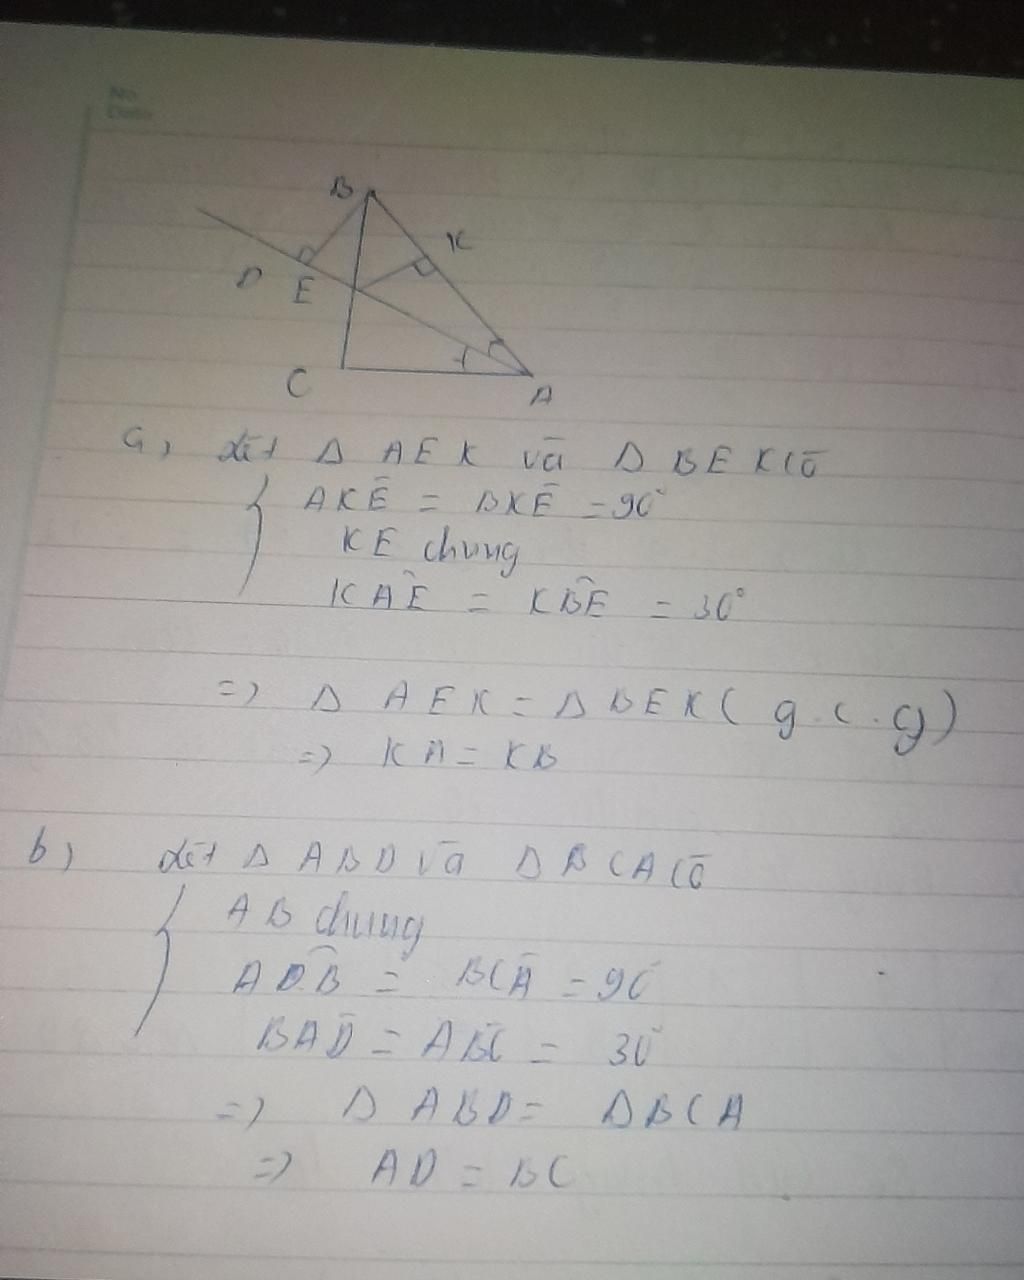 No
Date
B
K
D
E
C
A
a, Xét Δ AEK và Δ BEK có
AKÊ = BKÊ = 90°
KE chung
KÂE = KB̂E = 30°
=> Δ AEK = Δ BEK ( g.c.g)
=> KA = KB
b, Xét Δ ABD và Δ BCA có
AB chung
AD̂B = BCÂ = 90°
BAD̂ = AB̂C = 30°
=> Δ ABD = Δ BCA
=> AD = BC